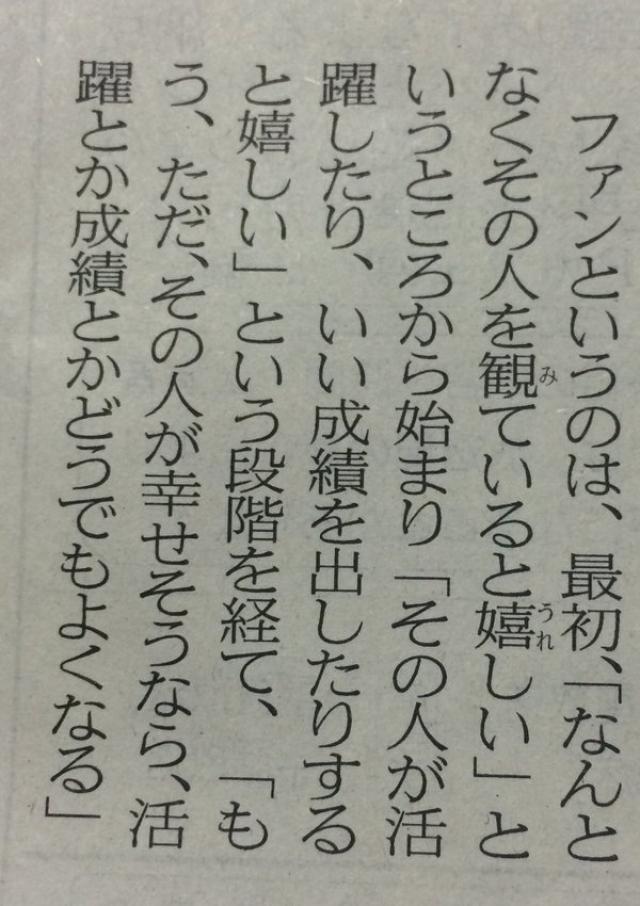 ファンというのは、最初、「なんと
なくその人を観ていると嬉しい」と
いうところから始まり「その人が活
躍したり、いい成績を出したりする
と嬉しい」という段階を経て、「も
う、ただ、その人が幸せそうなら、活
躍とか成績とかどうでもよくなる」